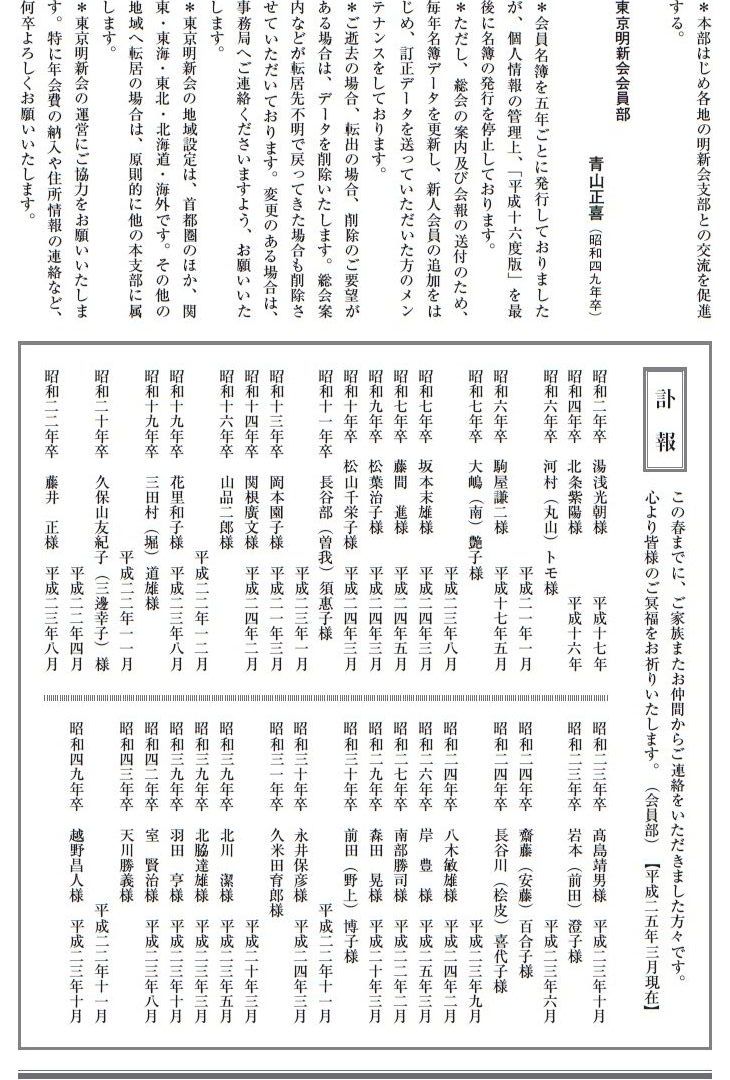 ＊本部はじめ各地の明新会支部との交流を促進
する。
東京明新会会員部
青山正喜（昭和四九年卒）
＊会員名簿を五年ごとに発行しておりました
が、個人情報の管理上、「平成十六度版」を最
後に名簿の発行を停止しております。
＊ただし、総会の案内及び会報の送付のため、
毎年名簿データを更新し、新人会員の追加をは
じめ、訂正データを送っていただいた方のメン
テナンスをしております。
＊ご逝去の場合、転出の場合、削除のご要望が
ある場合は、データを削除いたします。総会案
内などが転居先不明で戻ってきた場合も削除さ
せていただいております。変更のある場合は、
事務局へご連絡くださいますよう、お願いいた
します。
＊東京明新会の地域設定は、首都圏のほか、関
東・東海・東北・北海道・海外です。その他の
地域へ転居の場合は、原則的に他の本支部に属
します。
＊東京明新会の運営にご協力をお願いいたしま
す。特に年会費の納入や住所情報の連絡など、
何卒よろしくお願いいたします。
訃報
この春までに、ご家族またお仲間からご連絡をいただきました方々です。
心より皆様のご冥福をお祈りいたします。（会員部）【平成二五年三月現在】
昭和二年卒　湯浅光朝様　平成十七年
昭和四年卒　北条紫陽様　平成十六年
昭和六年卒　河村（丸山）トモ様
平成二一年一月
昭和六年卒　駒屋謙二様　平成十七年五月
昭和七年卒　大嶋（南）艶子様
平成二三年八月
昭和七年卒　坂本末雄様　平成二四年三月
昭和七年卒　藤間　進様　平成二四年五月
昭和九年卒　松葉治子様　平成二四年三月
昭和十年卒　松山千栄子様　平成二四年三月
昭和十一年卒　長谷部（曽我）須惠子様
平成二三年一月
昭和十三年卒　岡本園子様　平成二一年三月
昭和十四年卒　関根廣文様　平成二四年二月
昭和十六年卒　山品二郎様
平成二二年一二月
昭和十九年卒　花里和子様　平成二三年八月
昭和十九年卒　三田村（堀）道雄様
平成二二年一一月
昭和二十年卒　久保山友紀子（三邊幸子）様
平成二二年四月
昭和二二年卒　藤井　正様　平成二三年八月
昭和二三年卒　髙島靖男様　平成二三年十月
昭和二三年卒　岩本（前田）澄子様
平成二三年六月
昭和二四年卒　齋藤（安藤）百合子様
昭和二四年卒　長谷川（桧皮）喜代子様
平成二三年九月
昭和二四年卒　八木敏雄様　平成二四年二月
昭和二六年卒　岸　豊　様　平成二五年三月
昭和二七年卒　南部勝司様　平成二二年二月
昭和二九年卒　森田　晃様　平成二十年三月
昭和三十年卒　前田（野上）博子様
平成二二年十一月
昭和三十年卒　永井保彦様　平成二四年三月
昭和三一年卒　久米田育郎様
平成二十年三月
昭和三九年卒　北川　潔様　平成二三年五月
昭和三九年卒　北脇達雄様　平成二三年三月
昭和三九年卒　羽田　亨様　平成二三年十月
昭和四二年卒　室　賢治様　平成二三年八月
昭和四三年卒　天川勝義様
平成二二年十一月
昭和四九年卒　越野昌人様　平成二三年十月